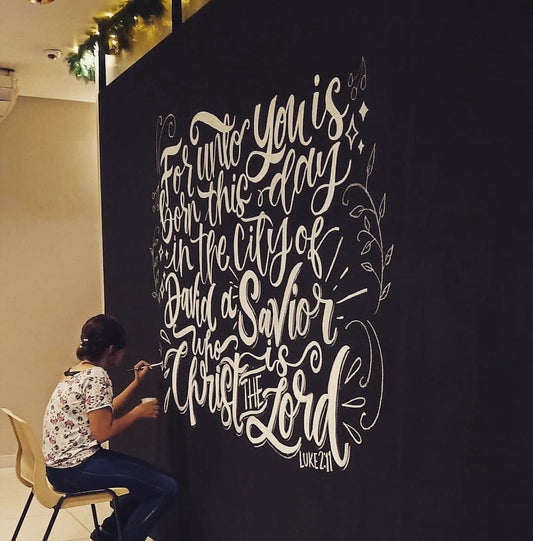 For unto you is
Born this day
in the City of
David a Savior
who is
Christ THE Lord
LUKE 2:11